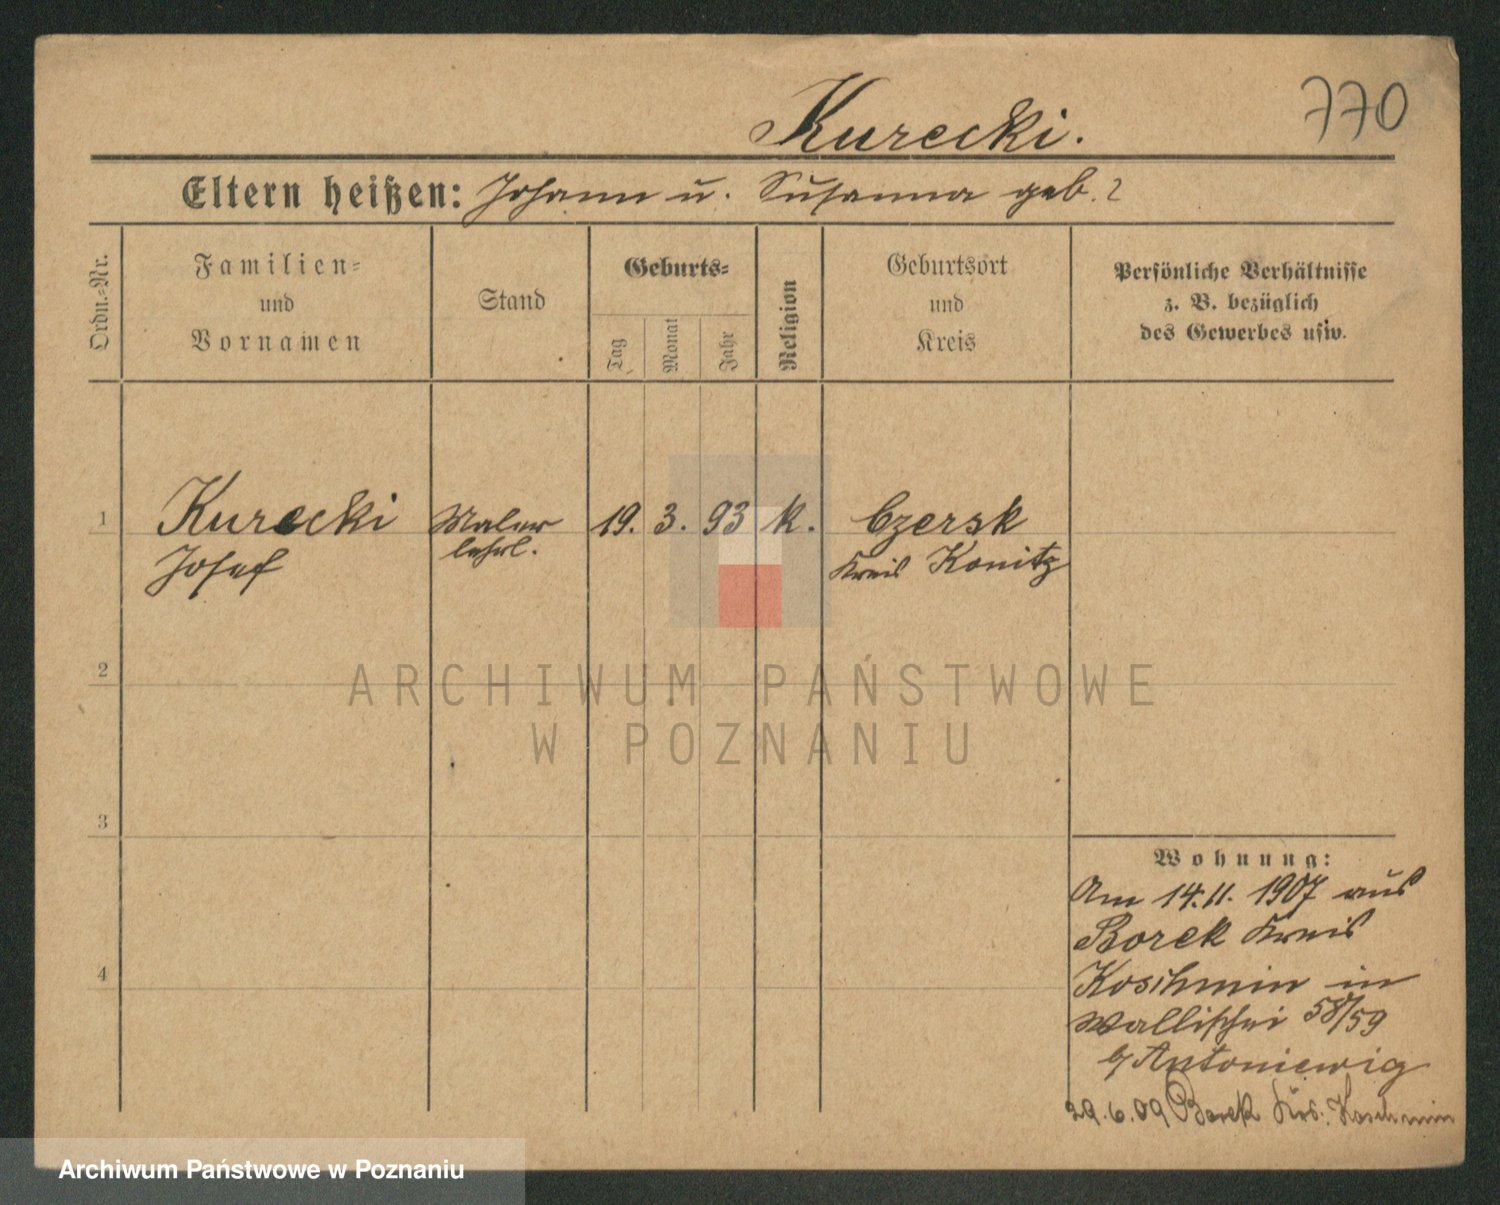 770
Kurecki.
Eltern heißen: Johann u. Susanna geb. ?
Ordn.-Nr.
Familien-
und
Vornamen
Stand
Geburts-
Tag
Monat
Jahr
Religion
Geburtsort
und
Kreis
Persönliche Verhältnisse
z. B. bezüglich
des Gewerbes usw.
1
Kurecki
Josef
Maler
lehrl.
19. 3. 93
k.
Czersk
Kreis Konitz
2
3
4
ARCHIWUM PAŃSTWOWE
W POZNANIU
Wohnung:
Am 14.11. 1907 aus
Borek Kreis
Koschmin in
Wallischei 58/59
b/ Antoniewig
29.6.09 Borek Krs. Koschmin
Archiwum Państwowe w Poznaniu